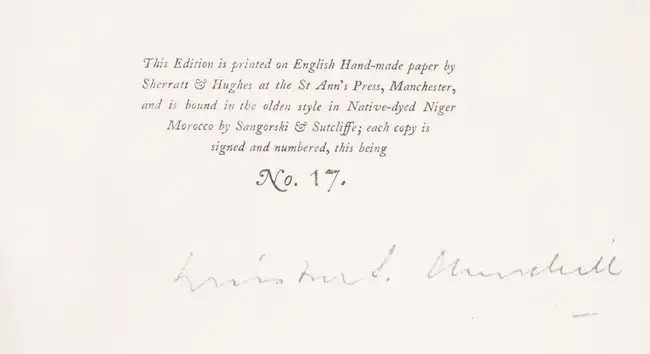 This Edition is printed on English Hand-made paper by
Sherratt & Hughes at the St Ann's Press, Manchester,
and is bound in the olden style in Native-dyed Niger
Morocco by Sangorski & Sutcliffe; each copy is
signed and numbered, this being
No. 17.
Winston S. Churchill